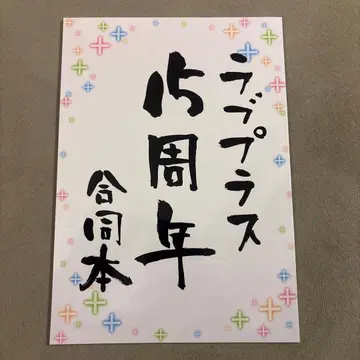 ラブプラス
15周年
合同本